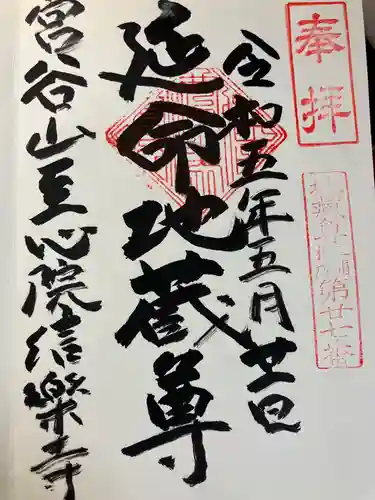 奉拝
第廿七番
令和五年五月廿二日
延命地蔵尊
宮谷山至心院信楽寺